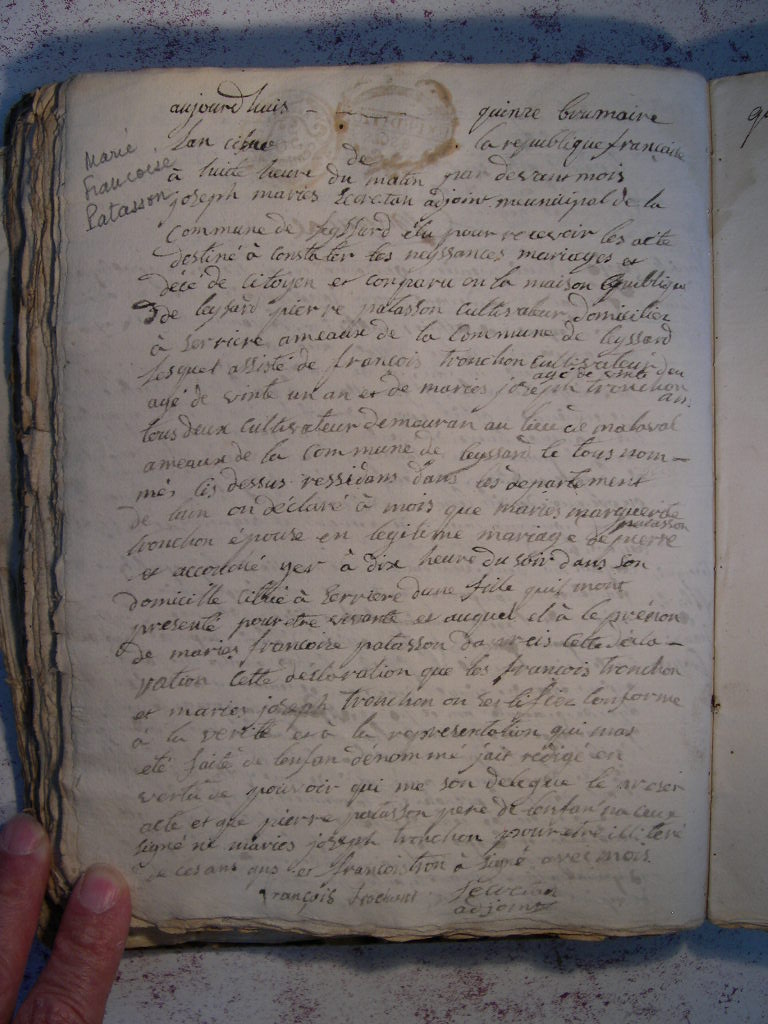 Marie
Francoise
Patasson
aujourdhuis - quinze brumaire
lan cinc de la republique francaise
à huite heure du matin par devant mois
joseph maries Secretan adjoint meunicipal de la
Commune de leyssard élu pour recevoir les acte
destiné à constater les neyssances mariages et
décé de citoyen et comparu en la maison publique
de leyssard pierre patasson cultivateur domicilier
à serriere ameaux de la commune de leyssard
lesquet assisté de francois tronchon cultivateur
agé de vinte un an et de maries joseph tronchon
agé de vint deu
an
tous deux cultivateur demeuran au lieu de malaval
ameaux de la commune de leyssard le tous nom-
més cis dessus ressidans dans les departement
de lain on déclaré à mois que maries marguerite
tronchon épouse en legitime mariage de pierre
patasson
et accouché yer à dix heure du soir dans son
domicille à serriere dune fille quil mont
presenté pour etre vivante et auquel el à le prénon
de maries francoise patasson cette décla-
ration cette declaration que les francois tronchon
et maries joseph tronchon on sertifiez conforme
à la verité et à la representation qui mas
eté faite de lenfan dénommé jait rédigé en
vertu de pouvoir qui me son delegue le
acte et que pierre patasson pere de lenfan
signé ne maries joseph tronchon pour etre illiteré
de ces ans quis et francois tron à signé avec mois
francois tronchont Secretan
adjoint